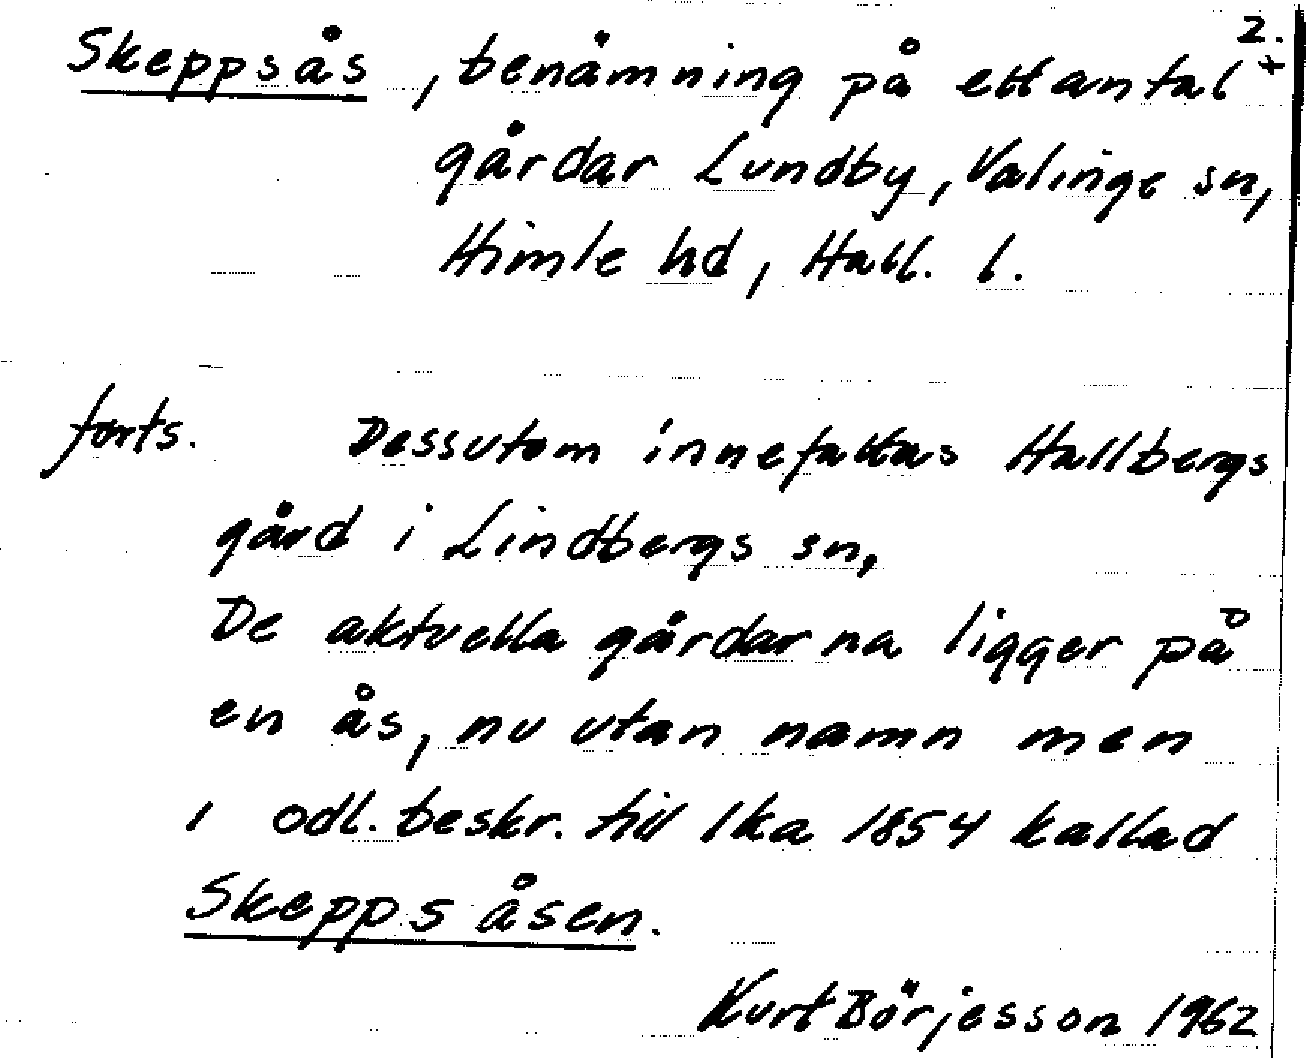 2.
Skeppsås, benämning på ett antal +
gårdar Lundby, Valinge sn,
Himle hd, Hall. l.
forts. Dessutom innefattas Hallbergs
gård i Lindbergs sn,
De aktuella gårdarna ligger på
en ås, nu utan namn men
i odl. beskr. till lka 1854 kallad
Skeppsåsen.
Kurt Börjesson 1962